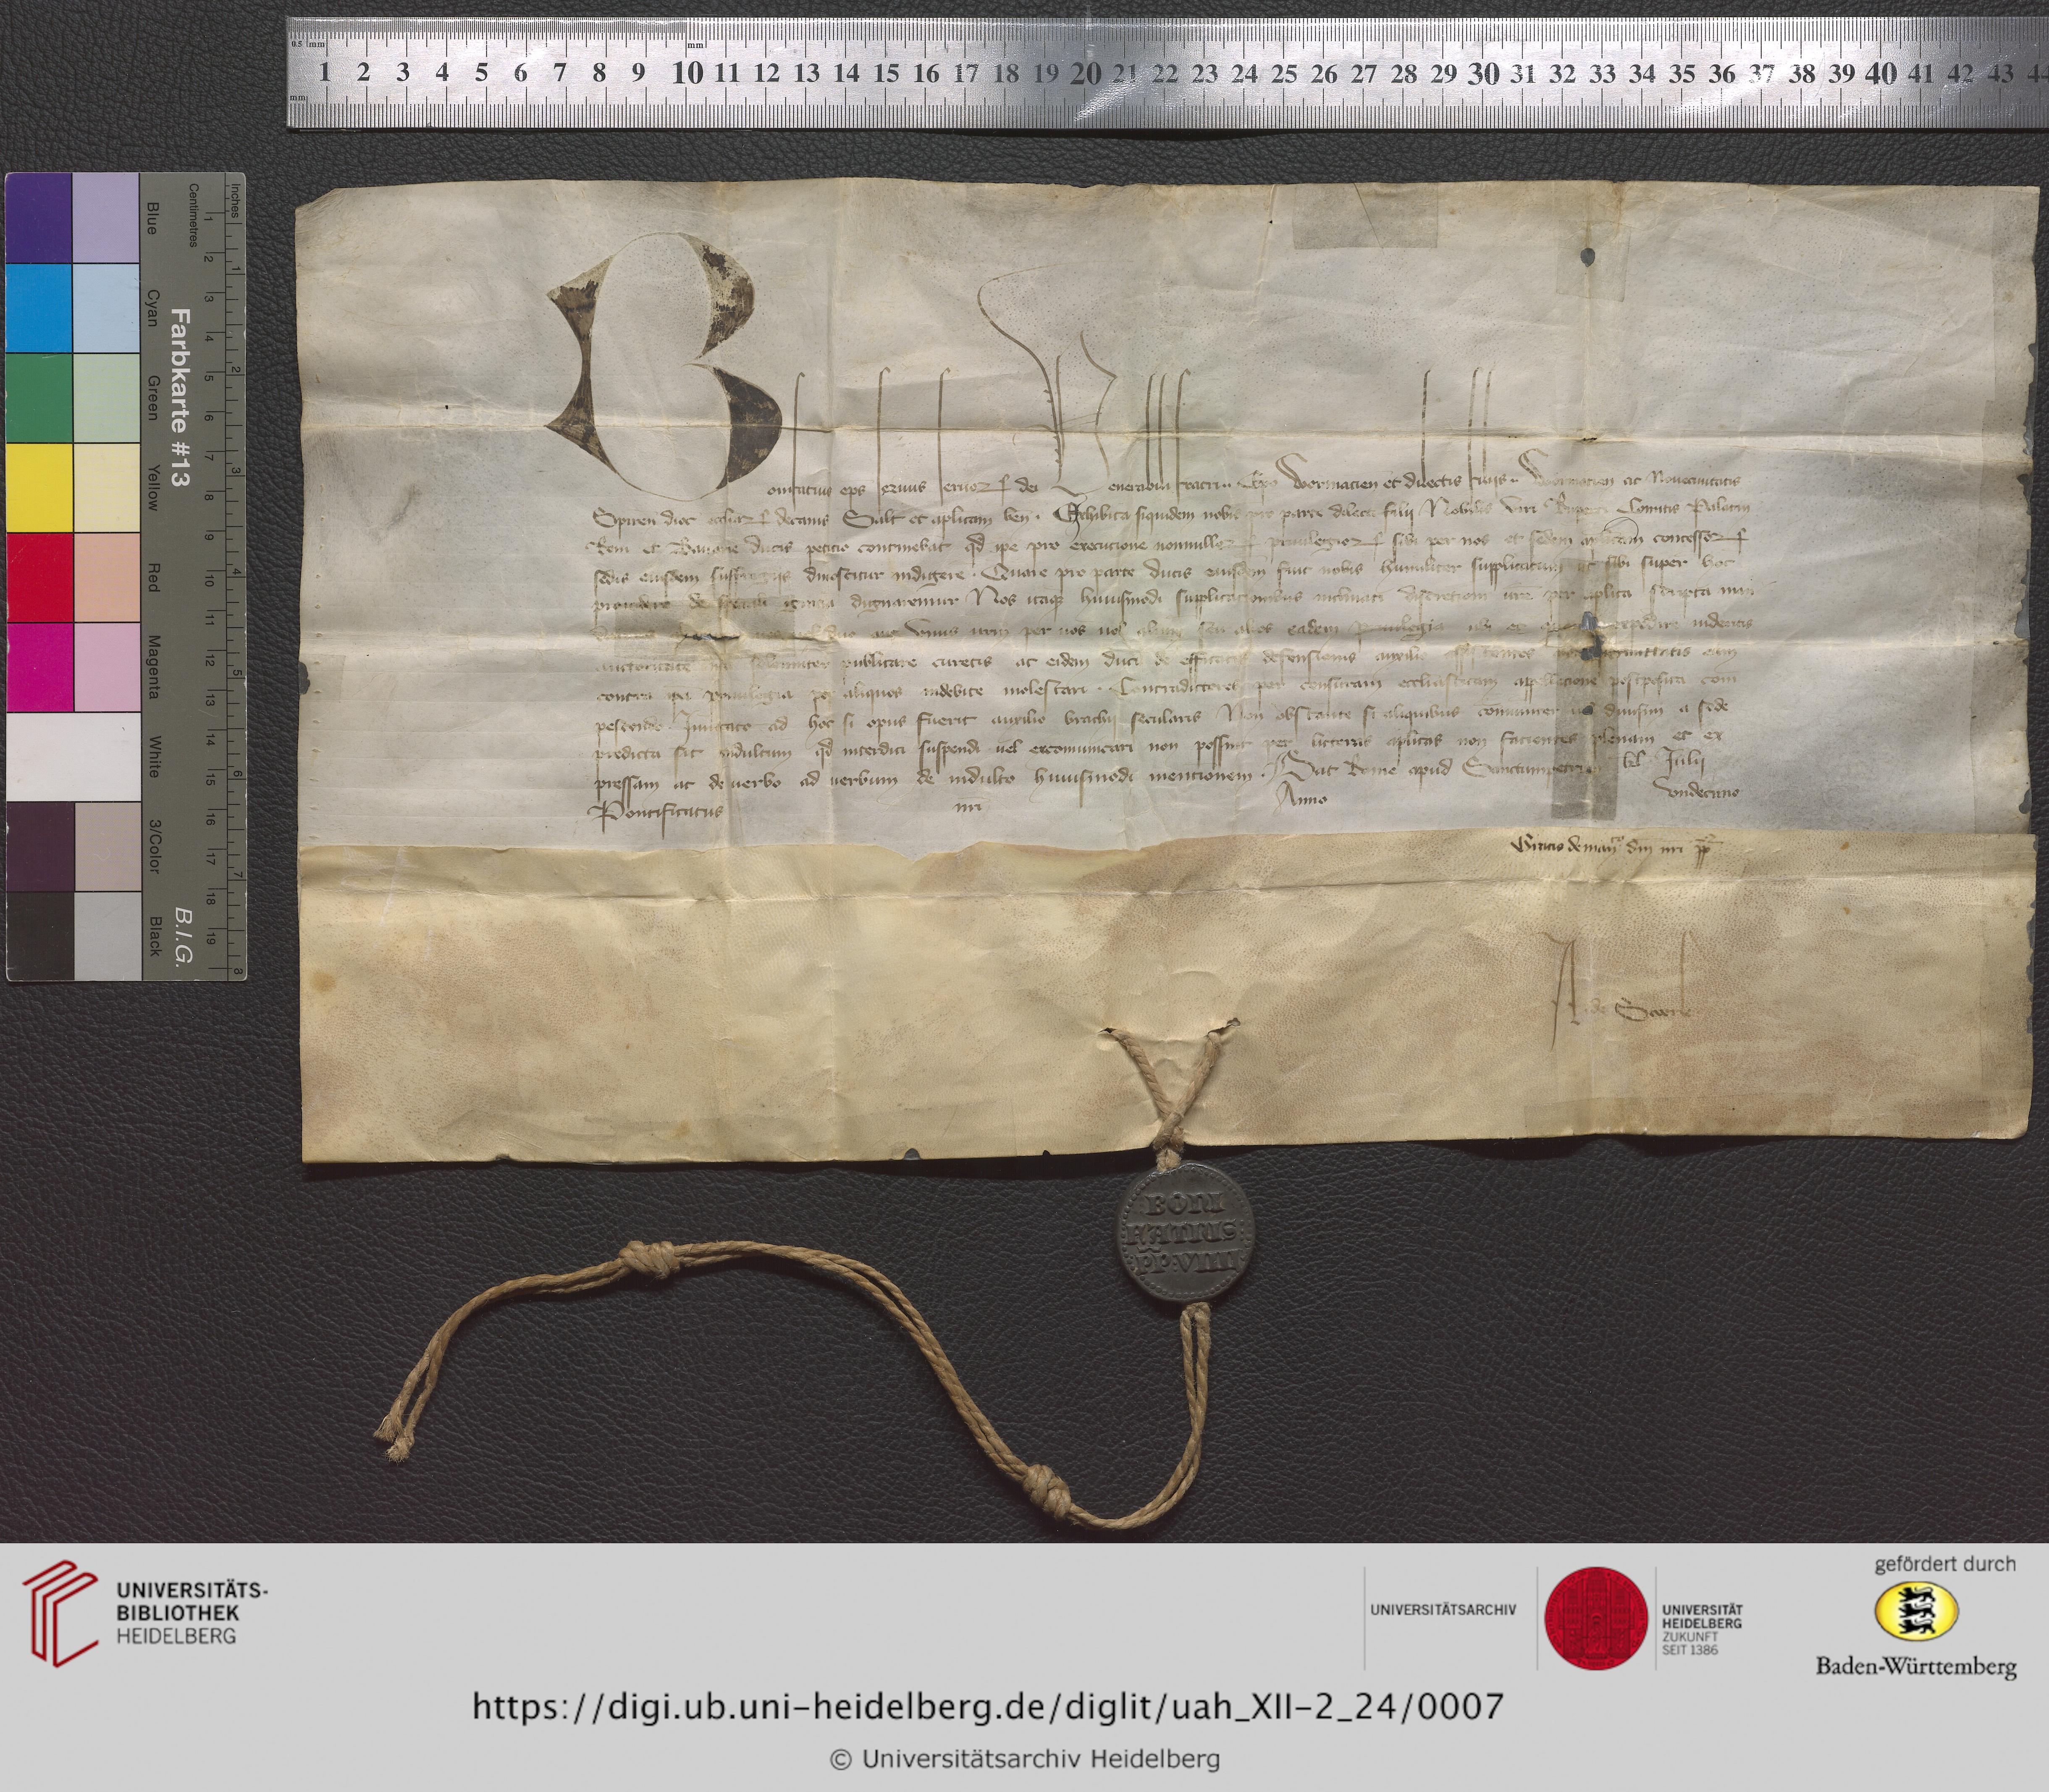 0.5 mm mm
1 2 3 4 5 6 7 8 9 10 11 12 13 14 15 16 17 18 19 20 21 22 23 24 25 26 27 28 29 30 31 32 33 34 35 36 37 38 39 40 41 42 43 44
mm
Inches
Centimetres
Farbkarte #13
B.I.G.
Blue
Cyan
Green
Yellow
Red
Magenta
White
3/Color
Black
1 2 3 4 5 6 7 8 9 10 11 12 13 14 15 16 17 18 19
1 2 3 4 5 6 7 8
Bonifatius eps seruus seruoꝝ dei Venerabili fratri ·· Epo Wormacien et dilectis filijs ·· Wormacien ac Nouecivitatis
Spiren dioc eccliaꝝ decanis Salt et aplicam ben. Exhibita siquidem nobis pro parte dilecti filij Nobilis viri Ruperti Comitis Palatini
Reni et Bauarie ducis petitio continebat qd ipe pro executione nonnulloꝝ priuilegioꝝ sibi per nos et sedem aplicam concessoꝝ
sedis eiusdem suffragijs dinoscitur indigere. Quare pro parte ducis eiusdem fuit nobis humiliter supplicatum ut sibi super hoc
prouidere de gratia dignaremur Nos itaque huiusmodi supplicationibus inclinati discretioni vre per aplica scripta man
duo aut vnus vrm per vos uel alium seu alios eadem priuilegia ubi et expedire uideritis
auctoritate solenniter publicare curetis ac eidem duci de efficacis defensionis auxilio assistentes non permittatis eum
contra ipa priuilegia per aliquos indebite molestari. Contradictores per censuram ecclesiasticam appellatione postposita com
pescendo. Inuocato ad hoc si opus fuerit auxilio brachij secularis Non obstante si aliquibus communiter uel diuisim a sede
predicta sit indultum qd interdici suspendi uel excommunicari non possint per litteras aplicas non facientes plenam et ex
pressam ac de uerbo ad uerbum de indulto huiusmodi mentionem. Dat Rome apud Sanctumpetrum kl Julij
Pontificatus nri Anno vndecimo
Gratis de man dni nri pp
A de
BONI
FATIUS
PP:VIIII
UNIVERSITÄTS-
BIBLIOTHEK
HEIDELBERG
UNIVERSITÄTSARCHIV
UNIVERSITÄT
HEIDELBERG
ZUKUNFT
SEIT 1386
gefördert durch
Baden-Württemberg
https://digi.ub.uni-heidelberg.de/diglit/uah_XII-2_24/0007
© Universitätsarchiv Heidelberg